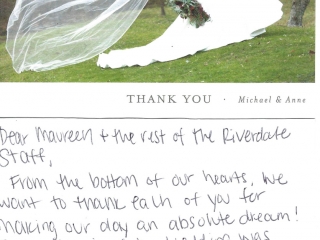 THANK YOU · Michael & Anne
Dear Maureen + the rest of the Riverdale
Staff,
From the bottom of our hearts, we
want to thank each of you for
making our day an absolute dream!
was